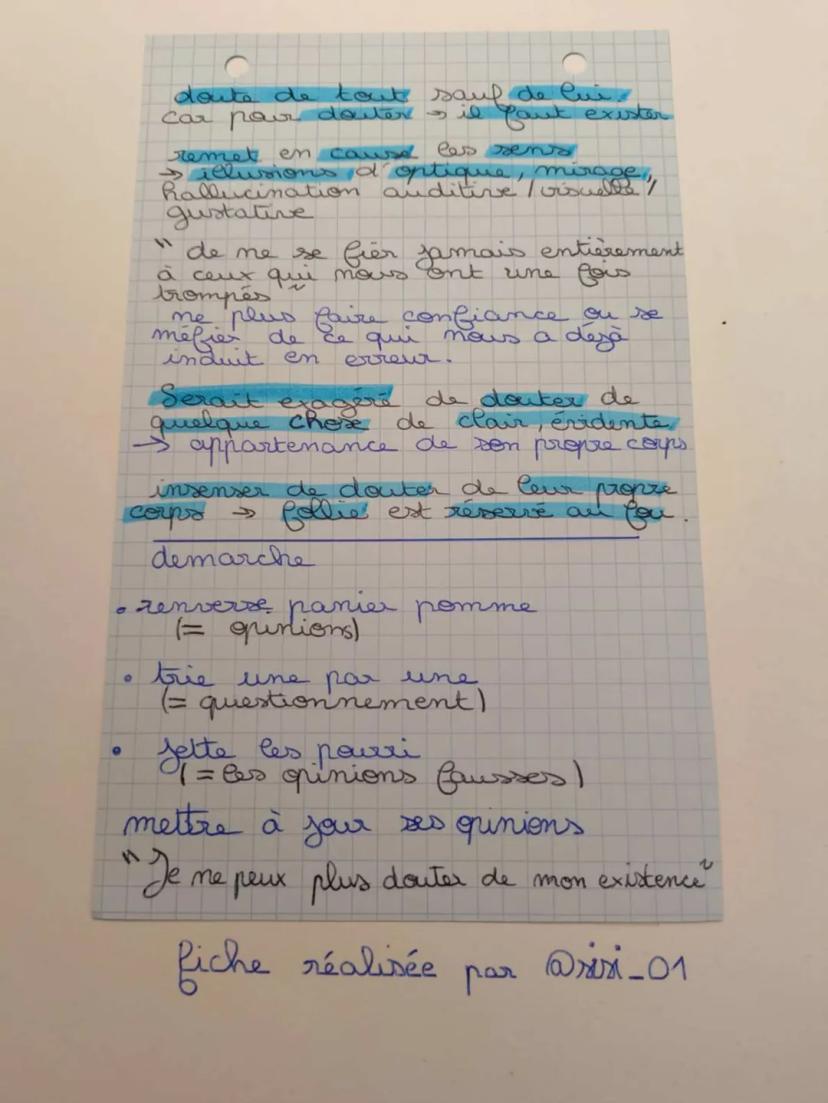 doute de tout sauf de lui.
car pour douter → il faut exister
remet en cause les sens
→ illusions d'optique, mirage,
hallucination auditive / visuelle /
gustative
" de ne se fier jamais entièrement
à ceux qui nous ont une fois
trompés "
ne plus faire confiance ou se
méfier de ce qui nous a déjà
induit en erreur.
Serait exagéré de douter de
quelque chose de clair, évidente
→ appartenance de son propre corps
insenser de douter de leur propre
corps → follie est réservé au fou.
demarche
• renverse panier pomme
(= opinions)
• trie une par une
(= questionnement)
• jette les pourri
(= les opinions fausses)
mettre à jour ses opinions
"Je ne peux plus douter de mon existence"
fiche réalisée par @sisi_01